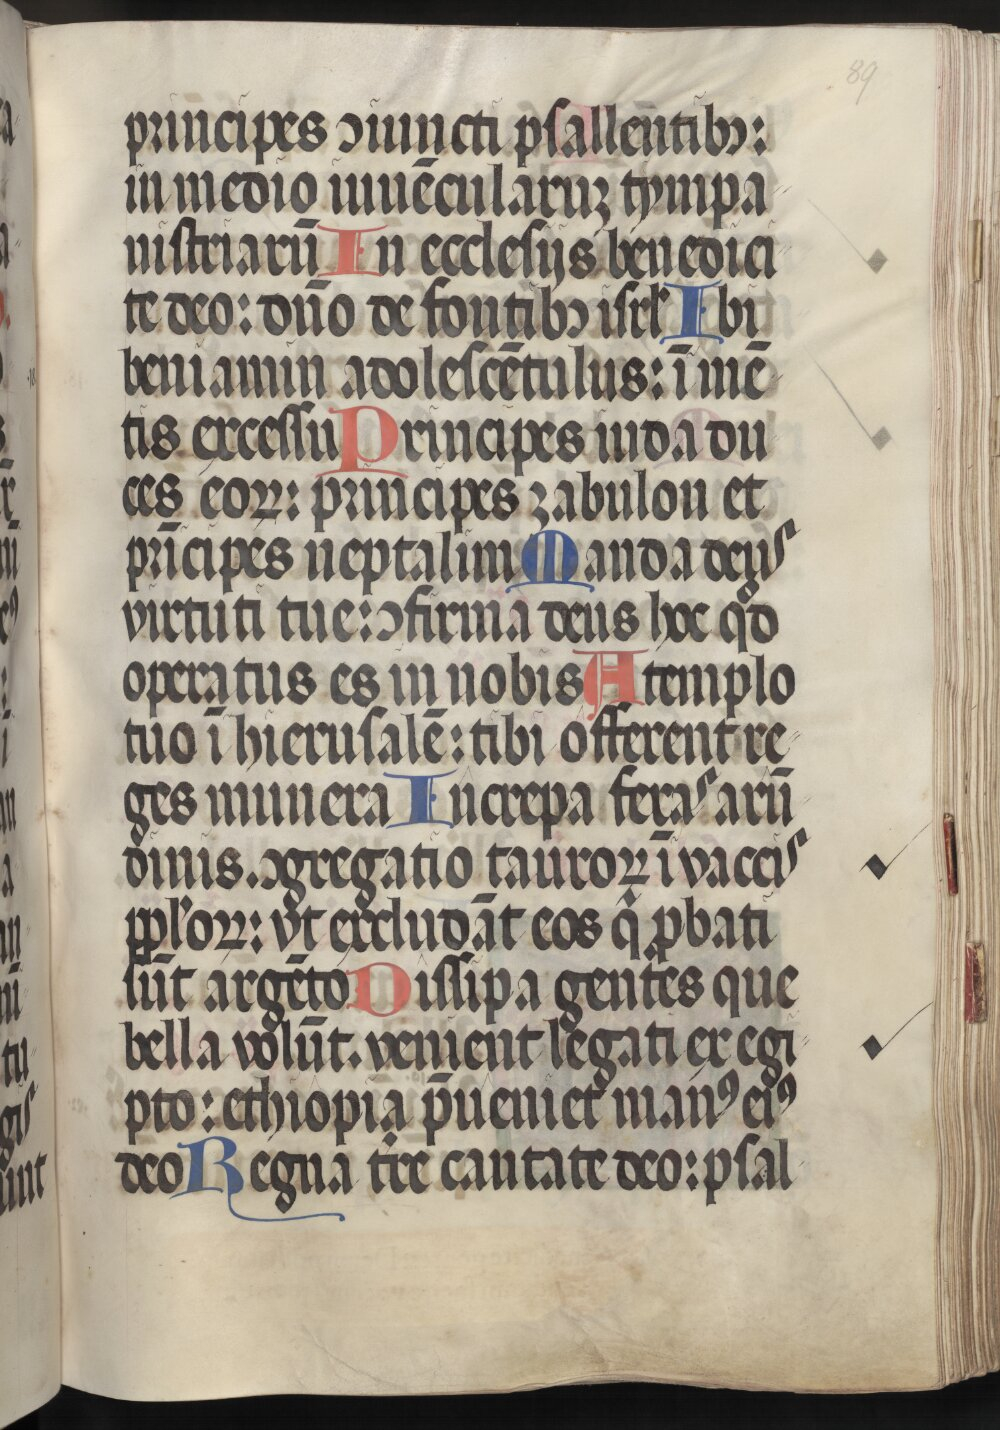 89
principes ↄiuncti psallentibꝫ:
in medio iuuēcularuꝫ tympa
nistriarū In ecclesijs benedici
te deo: dño de fontibꝫ isrł Ibi
beniamin adolescētulus: ī mē
tis excessu Principes iuda du
ces eoꝝ: principes zabulon et
prīcipes neptalim Manda deus
virtuti tue: ↄfirma deus hoc qd̄
operatus es in nobis A templo
tuo ī hierusalē: tibi offerent re
ges munera Increpa feras arū
dinis. ↄgregatio tauroꝝ ī vaccis
ppl'oꝝ: vt excludāt eos q̄ ꝓbati
sūt argēto Dissipa gentes que
bella volūt. venient legati ex egi
pto: ethiopia p̄ueniet manꝰ eiꝰ
deo Regna tr̄e cantate deo: psal